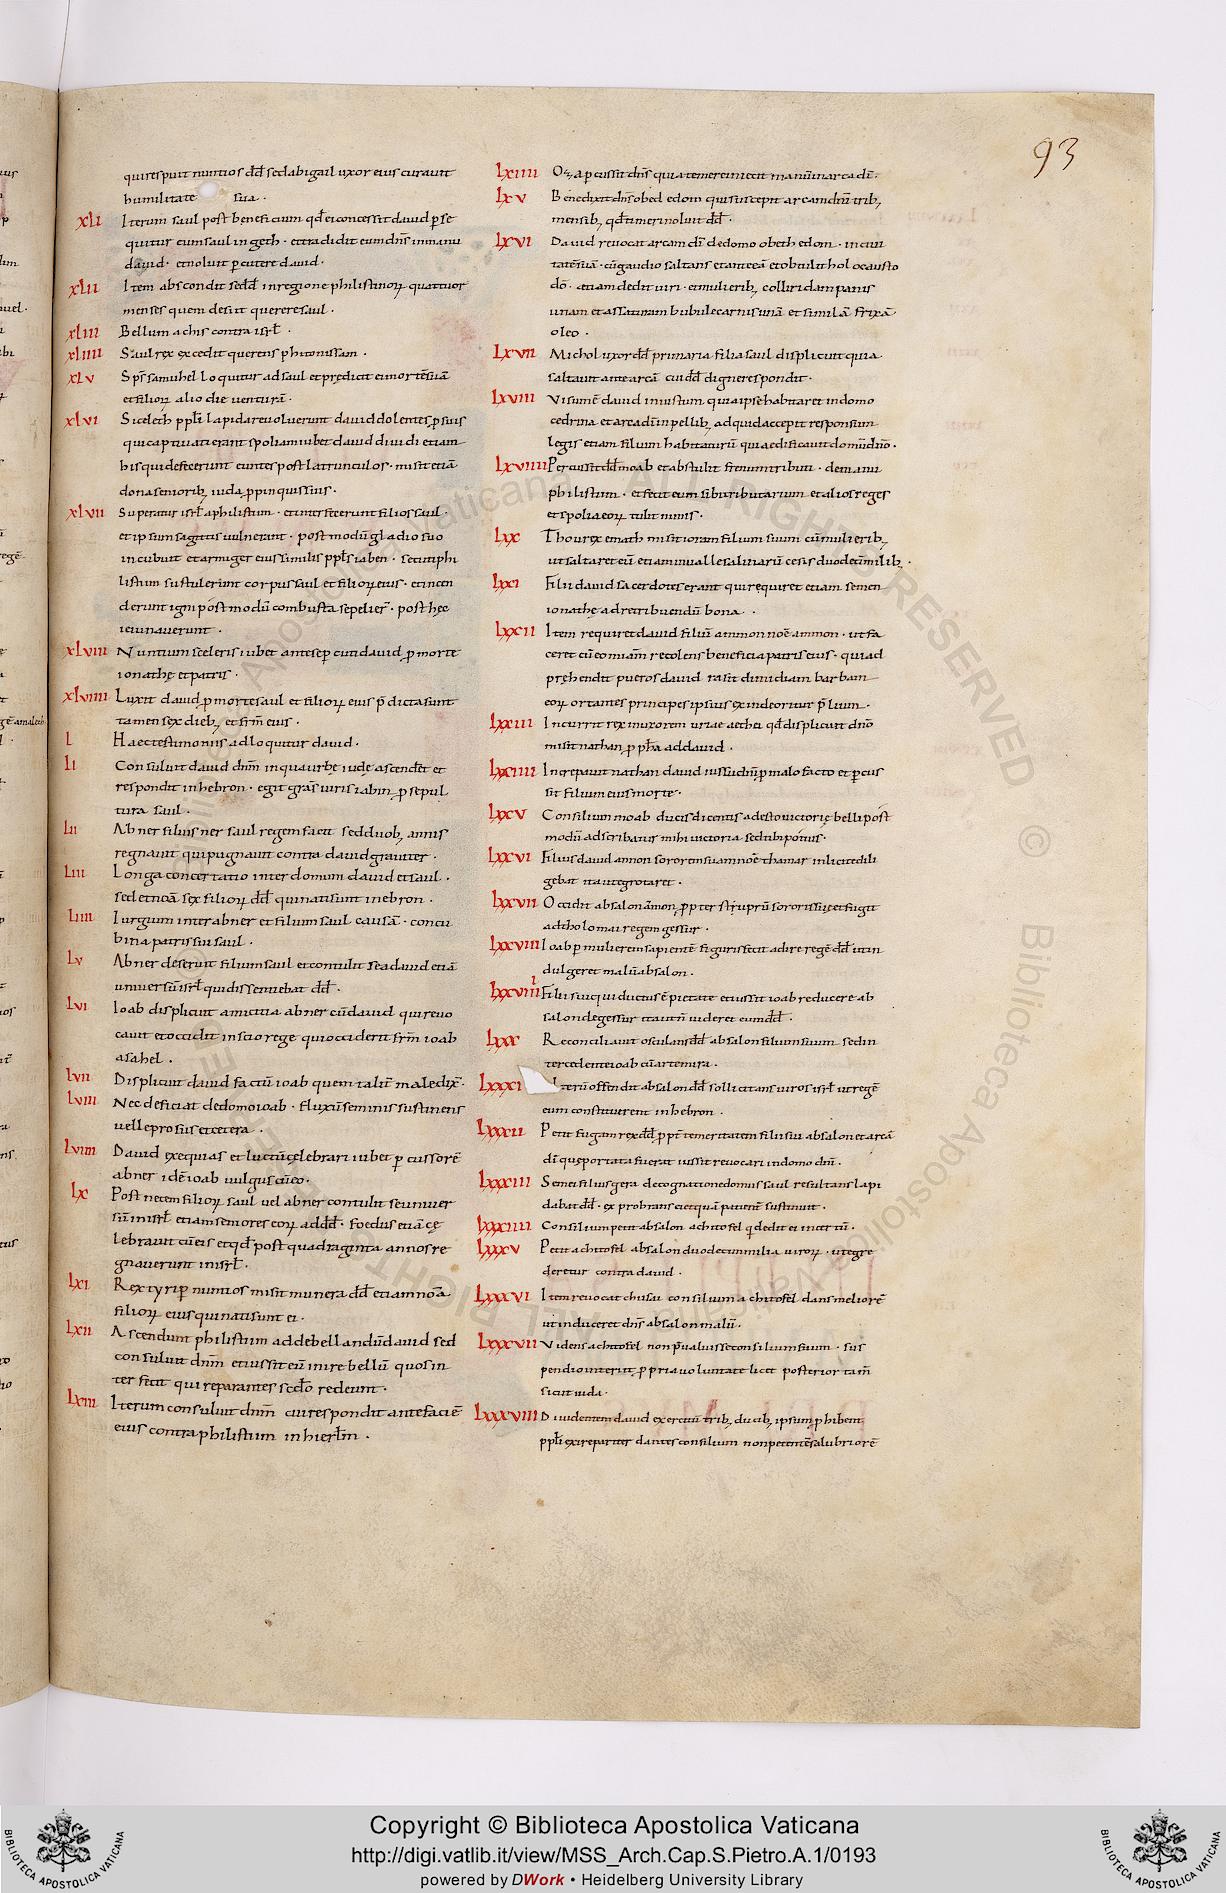 93
qui respuit nuntios dd̄ sed abigail uxor eius curauit
humilitate sua .
XLI Iterum saul post beneficium qd̄ ei concessit dauid p se
quitur eum saul in geth · et tradidit eum dn̄s in manu
dauid · et noluit percutere dauid ·
XLII Item abscondit se dd̄ in regione philistinoꝝ quattuor
menses quem desiit querere saul ·
XLIII Bellum achis contra isrł ·
XLIIII Saul rex excedit querens phitonissam ·
XLV Sps̄ samuhel loquitur ad saul et predicit ei mortē suā
et filioꝝ alio die venturā ·
XLVI Siceleth ppłi lapidare uoluerunt dauid dolentes, p suis
qui captiuati erant spoliam iubet dauid diuidi etiam
his qui defecerunt euntes post latrunculos · misit etiā
dona senioribꝫ iuda, ppinquis suis ·
XLVII Superatur isrł a philistim · et interfecerunt filios saul ·
et ipsum sagittis uulnerunt · post modū gladio suo
incubuit et armiger eius similis ppłs iaben · secuti phi
listim sustulerunt corpus saul et filioꝝ eius · et incen
derunt igni post modū combusta sepelier̄ · post hęc
ieiunauerunt ·
XLVIII Nuntium sceleris iubet ante se percuti dauid p morte
ionathę et patris ·
XLVIIII Luxit dauid p morte saul et filioꝝ eius p̄dicta sunt
tamen sex diebꝫ et frm̄ eius ·
L Haec testimoniis adloquitur dauid ·
LI Consuluit dauid dnm̄ in qua urbe iudę ascenderet et
respondit in hebron · egit gras̄ uiris iabin, p sepul
tura saul ·
LII Abner filius ner saul regem facit sed duobꝫ annis
regnauit qui pugnauit contra dauid grauiter ·
LIII Longa concertatio inter domum dauid et saul ·
sed et noā sex filioꝝ dd̄ qui nati sunt in ebron ·
LIIII Iurgium inter abner et filium saul causā · concu
bina patris sui saul ·
LV Abner deseruit filium saul et contulit se a dauid etiā
uniuersū isrł qui dissentiebat dd̄ ·
LVI Ioab displicuit amicitia abner cū dauid qui reuo
cauit et occidit inscio rege qui occiderit frm̄ ioab
asahel .
LVII Displicuit dauid factū ioab quem talit̄ maledix̄ ·
LVIII Nec deficiat de domo ioab · fluxū seminis sustinens
uel leprosus et cetera .
LVIIII Dauid exequias et luctū celebrari iubet percussorē
abner idē ioab uulgus cū eo ·
LX Post necem filioꝝ saul uel abner contulit se uniuer
sū in isrł etiam seniores eoꝝ ad dd̄ · foedus etiā cę
lebrauit cū eis et qd̄ post quadraginta annos re
gnauerunt in isrł ·
LXI Rex tyri p nuntios misit munera dd̄ etiam noā
filioꝝ eius qui nati sunt ei ·
LXII Ascendunt philistim ad debellandū dauid sed
consuluit dnm̄ et iussit eū inire bellū quos in
ter fecit qui reparantes scđo redeunt ·
LXIII Iterum consuluit dnm̄ cui respondit ante faciē
eius contra philistim in hierłm ·
LXIIII Oza percussit dn̄s quia temere iniecit manū in arca dī ·
LXV Benedixit dn̄s obed edom qui suscepit arcam dn̄i tribꝫ
mensibꝫ qd̄ timeri noluit dd̄ ·
LXVI Dauid reuocat arcam dī de domo obeth edom · in ciui
tatē suā · cū gaudio saltans et ante eā et obtulit holocausto
dō · etiam dedit uiri · et mulieribꝫ colliridam panis
unam et assaturam bubule carnis unā et similā frixā
oleo ·
LXVII Michol uxor dd̄ primaria filia saul displicuit quia
saltauit ante arcā cui dd̄ digne respondit ·
LXVIII Visum ē dauid iniustum, quia ipse habitaret in domo
cedrina et area dī in pellibꝫ ad quid accepit responsum
legis etiam filium habitaturū qui aedificauit domū dn̄o ·
LXVIIII Percussit dd̄ moab et abstulit frenum tributi · de manu
philistim · et fecit eum sibi tributarium et alios reges
et spolia eoꝝ tulit nimis ·
LXX Thou rex emath misit ioram filium suum cū mulieribꝫ
ut saltaret eū etiam in ualle salinarū cesis duodecim milibꝫ ·
LXXI Filii dauid sacerdotes erant qui requiret etiam semen
ionathę ad retribuendū bona · ·
LXXII Item requiret dauid filiū ammon noē ammon · ut fa
ceret cū eo mīam recolens beneficia patris eius · qui ad
prehendit pueros dauid rasit dimidiam barbam
eoꝝ ortantes principes ipsius exinde oritur p̄lium ·
LXXIII Incurrit rex in uxorem uriae aethei qd̄ displicuit dn̄o
misit nathan, p pha ad dauid ·
LXXIIII Increpauit nathan dauid iussu dn̄i, p malo facto et percus
sit filium eius morte ·
LXXV Consilium moab ducis dicentis adesto uictorię belli post
modū adscribatur mihi uictoria sed tibi potius ·
LXXVI Filius dauid amnon sororem suam noē thamar inlicite dili
gebat ita ut egrotaret ·
LXXVII Occidit absalon amon, propter struprū sororis suę et fugit
ad tholomai regem gessur ·
LXXVIII Ioab per mulierem sapientē figuris fecit adire regē dd̄ ut in
dulgeret malū absalon ·
LXXVIIII Filii sui qui ductus ē pietate et iussit ioab reducere ab
salon de gessur ita ut n̄ uideret eum dd̄ ·
LXXX Reconciliauit osculans dd̄ absalon filium suum sed in
tercedente ioab cū artemira ·
LXXXI Iterū offendit absalon dd̄ sollicitans uiros isrł ut regē
eum constituerent in hebron ·
LXXXII Petit fugam rex dd̄, ppt̄ temeritatem filii sui absalon et arcā
dī quę portata fuerat iussit reuocari in domo dn̄i ·
LXXXIII Semei filius gera de cognatione domus saul resultans lapi
dabat dd̄ · exprobrans ei et quā patient̄ sustinuit ·
LXXXIIII Consilium petit absalon achitofel q dedit ei incertū ·
LXXXV Petit achitofel absalon duodecim milia uiroꝝ · ut egre
deretur contra dauid ·
LXXXVI Item reuocat chusai consilium achitofel dans meliorē
ut induceret dn̄s absalon malū ·
LXXXVII Videns achitofel non p̄ualuisse consilium suum · sus
pendio interiit, propria uoluntate licet posterior tam̄
sicut iuda ·
LXXXVIII Diuidentem dauid exercitū tribꝫ ducibꝫ ipsum, phibent
ppłi exire pariter dantes consilium non petentē salubriorē
Copyright © Biblioteca Apostolica Vaticana
http://digi.vatlib.it/view/MSS_Arch.Cap.S.Pietro.A.1/0193
powered by DWork • Heidelberg University Library
BIBLIOTECA APOSTOLICA VATICANA
BIBLIOTECA APOSTOLICA VATICANA